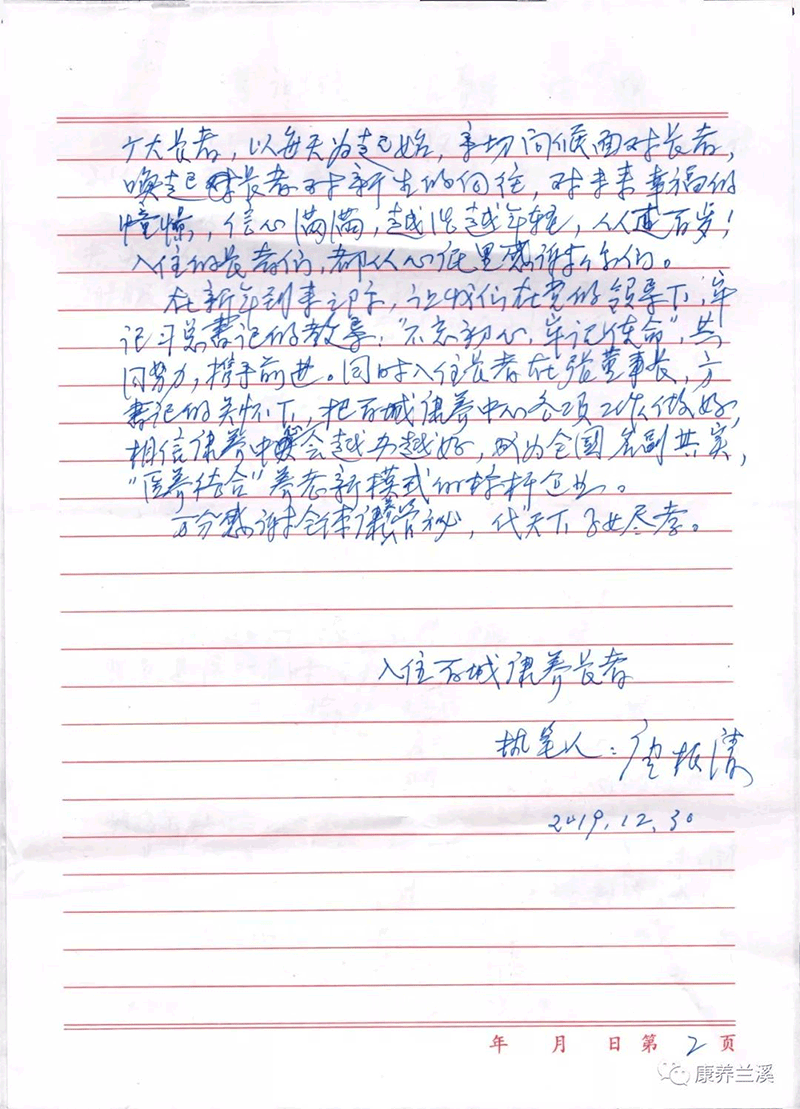 广大长者，以每天为起始，亲切问候面对长者，
唤起长者对新生的向往，对未来幸福的
憧憬，信心满满，越活越年轻，人人过百岁！
入住的长者们，都从心底里感谢你们。
在新年到来之际，让我们在党的领导下，牢
记习总书记的教导：“不忘初心，牢记使命”，共
同努力，携手前进。同时入住长者在张董事长，方
书记的关怀下，把百城康养中心各项工作做好，
相信康养中心会越办越好，成为全国名副其实，
“医养结合”养老新模式的标杆企业。
万分感谢全体康养管秘，代天下子女尽孝。
入住百城康养长者
执笔人：唐振清
2019.12.30
年 月 日第2页
康养兰溪